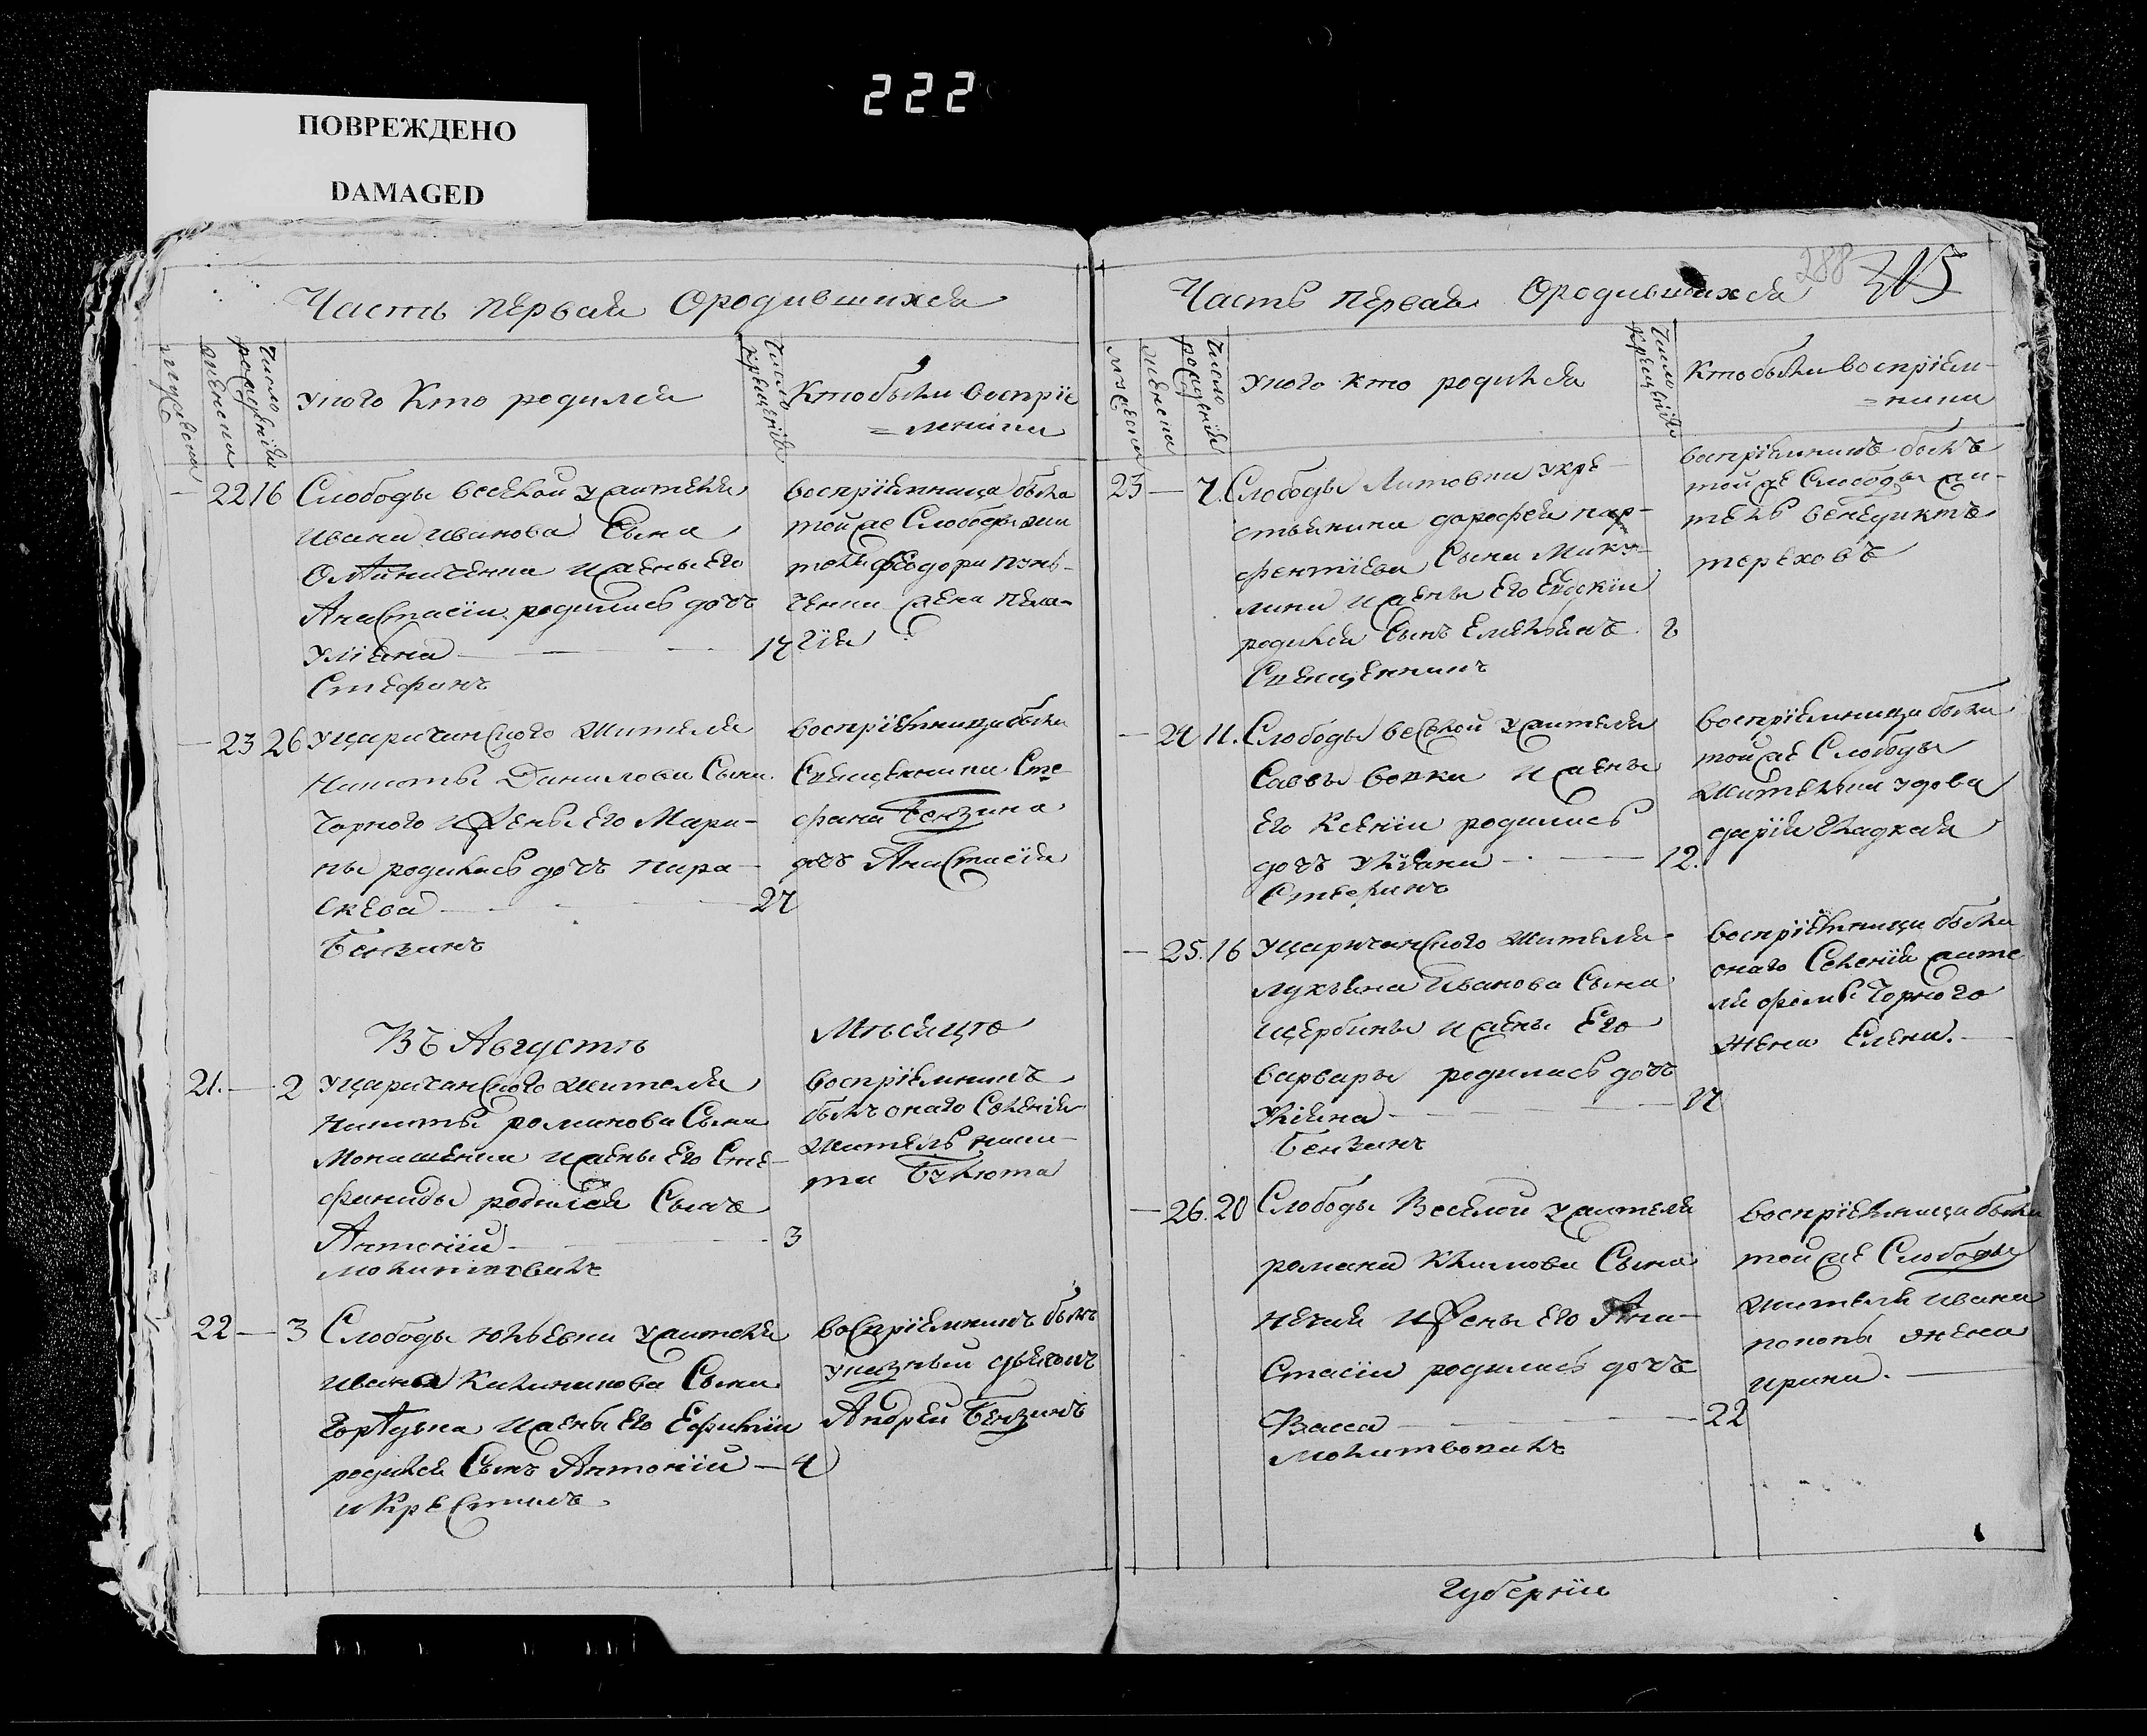 222
ПОВРЕЖДЕНО
DAMAGED
Часть первая Ородившихся
мужеска
женска
Число рождения
Уного Кто родился
Число крещенія
Кто были воспріе
= мники
22 16 Слободы веселой жителя
Ивана Иванова Сына
ижены Его
Анастасіи родилась дочъ
Уліана 17
Стефанъ
воспріемница была
тойже Слободы жи
теля Феодора
жена Пела-
гія
23 26 Уцаричанского жителя
Никиты Данилова Сына
Чорного ижены Его Мари-
ны родилась дочъ пара-
скева 27
Бензинъ
воспріемница была
Священника Сте
фана Бензина
дочъ Анастасія
Въ Августѣ Мѣсяцѣ
21. 2 Уцаричанского жителя
Никиты романова Сына
ижены Его Сте-
фаниды родился Сынъ
Антоній 3
воспріемникъ
былъ онаго Селенія
Житель ники-
та Бѣлюта
22 3 Слободы юльевки жителя
Ивана Калиникова Сына
ижены Его Ефиміи
родился Сынъ Антоній 4
и Крестилъ
воспріемникъ былъ
Андрей Бензинъ
Часть первая Ородившихся
288 315
мужеска
женска
Число рождения
Уного Кто родился
Число крещенія
Кто были воспріем-
= ники
23 7. Слободы Литовки укре-
стьянина дорофея пар-
фентіева Сына Мику-
лина ижены Его Евдокіи
родился Сынъ Емельянъ 8
Священникъ
воспріемникъ былъ
тойже Слободы жи-
тель Венедиктъ
тереховъ
24 11. Слободы веселой жителя
Саввы вовка ижены
Его Ксеніи родилась
дочъ Уліана 12.
Стефанъ
воспріемница была
тойже Слободы
Жителька удова
дарія Гладкая
25. 16 Уцаричанского жителя
лукьяна Иванова Сына
щербины ижены Его
варвары родилась дочъ
Уліана 17
Бензинъ
воспріемница была
онаго Селенія жите
ля фомы Чорного
Жена Елена.
26. 20 Слободы Веселой жителя
романа Климова Сына
нечая ижены Его Ана-
стасіи родилась дочъ
Васса 22
воспріемница была
тойже Слободы
Жителя Ивана
жена
ирина.
Губерніи